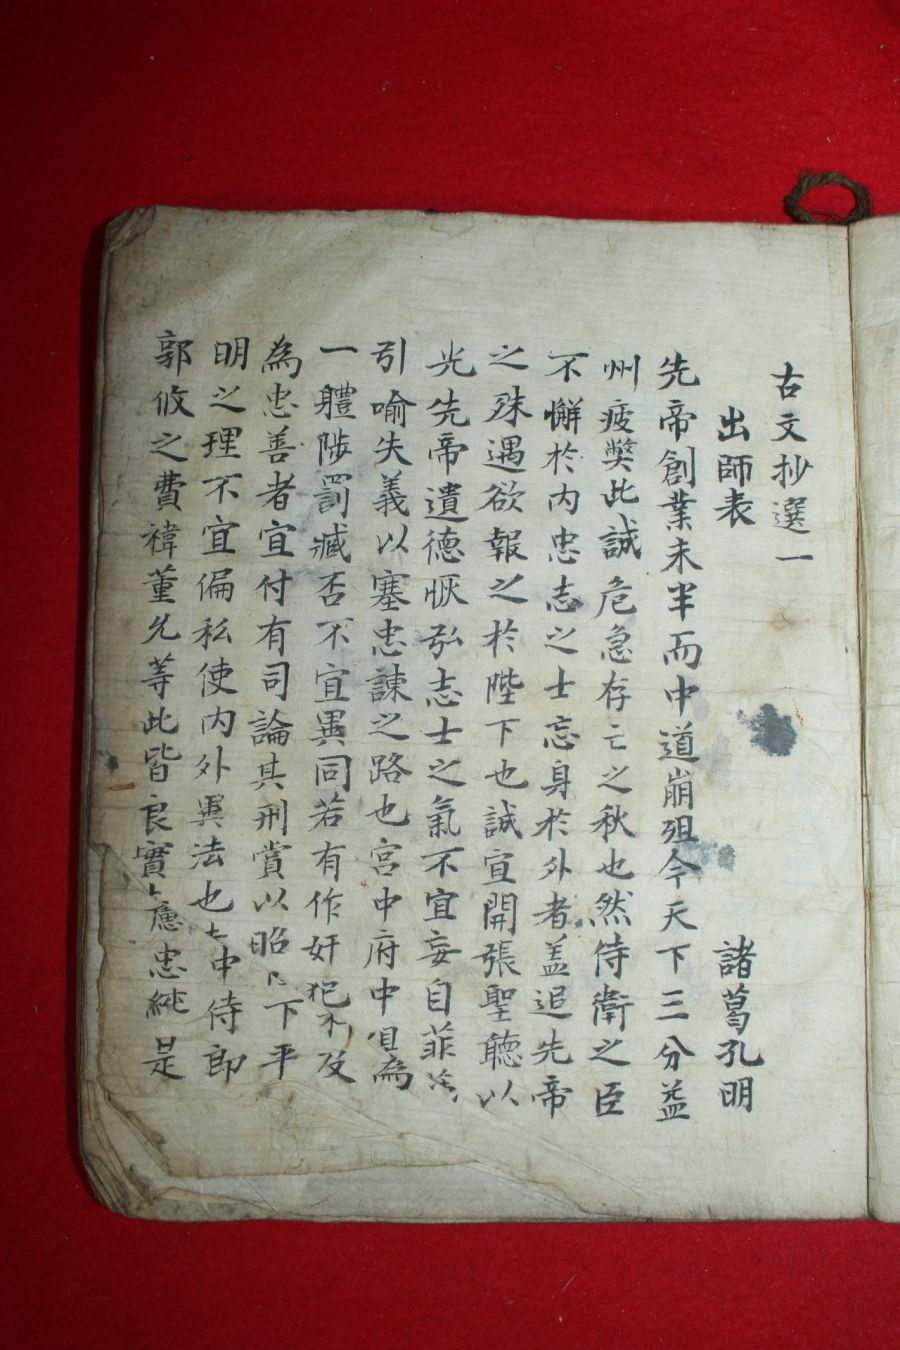 古文抄選一
出師表 諸葛孔明
先帝創業未半而中道崩殂今天下三分益
州疲獘此誠危急存亡之秋也然侍衛之臣
不懈於内忠志之士忘身於外者盖追先帝
之殊遇欲報之於陛下也誠宜開張聖聽以
光先帝遺德恢弘志士之氣不宜妄自菲
引喻失義以塞忠諫之路也宮中府中俱為
一體陟罰臧否不宜異同若有作奸犯及
為忠善者宜付有司論其刑賞以昭下平
明之理不宜偏私使内外異法也中侍郎
郭攸之費禕董允等此皆良實慮忠純是